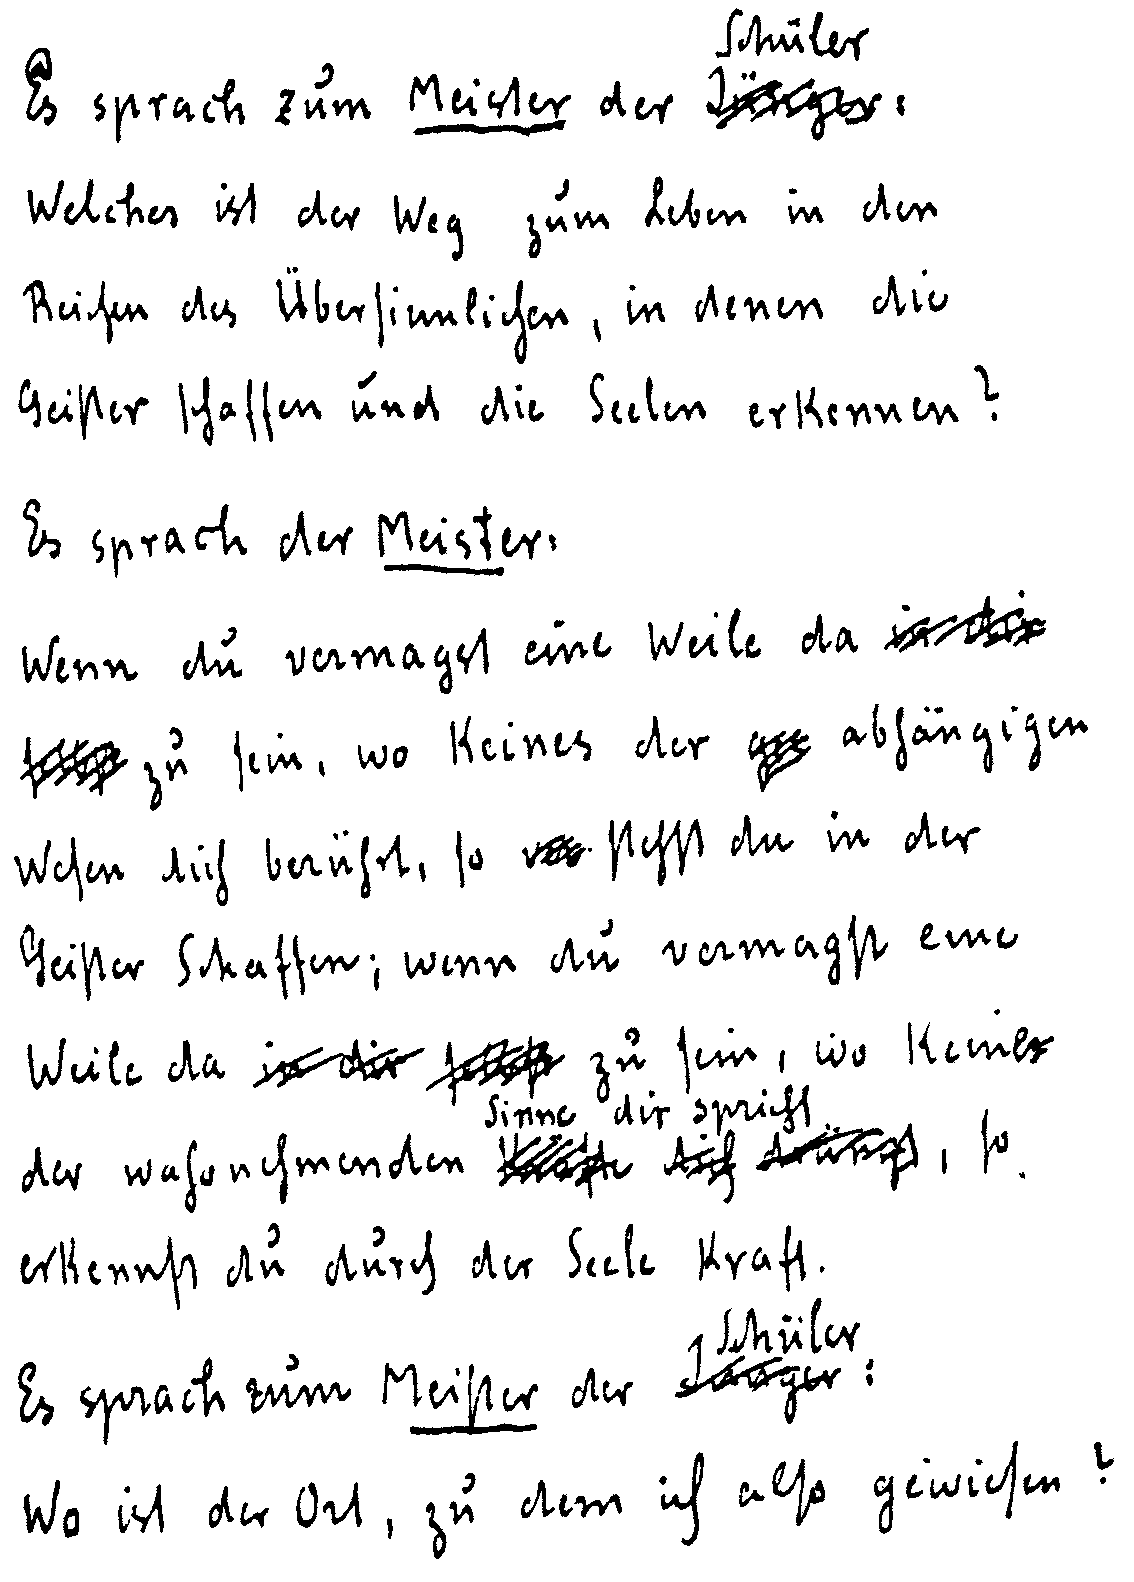 Schüler
Es sprach zum Meister der Jünger:
Welches ist der Weg zum Leben in den
Reichen des Übersinnlichen, in denen die
Geister schaffen und die Seelen erkennen?
Es sprach der Meister:
Wenn du vermagst eine Weile da in dir
selbst zu sein, wo Keines der abhängigen
Wesen dich berührt, so stehst du in der
Geister Schaffen; wenn du vermagst eine
Weile da in dir selbst zu sein, wo Keines
Sinne dir spricht
der wahrnehmenden dich drängt, so
erkennst du durch der Seele Kraft.
Schüler
Es sprach zum Meister der Jünger:
Wo ist der Ort, zu dem ich also gewiesen?